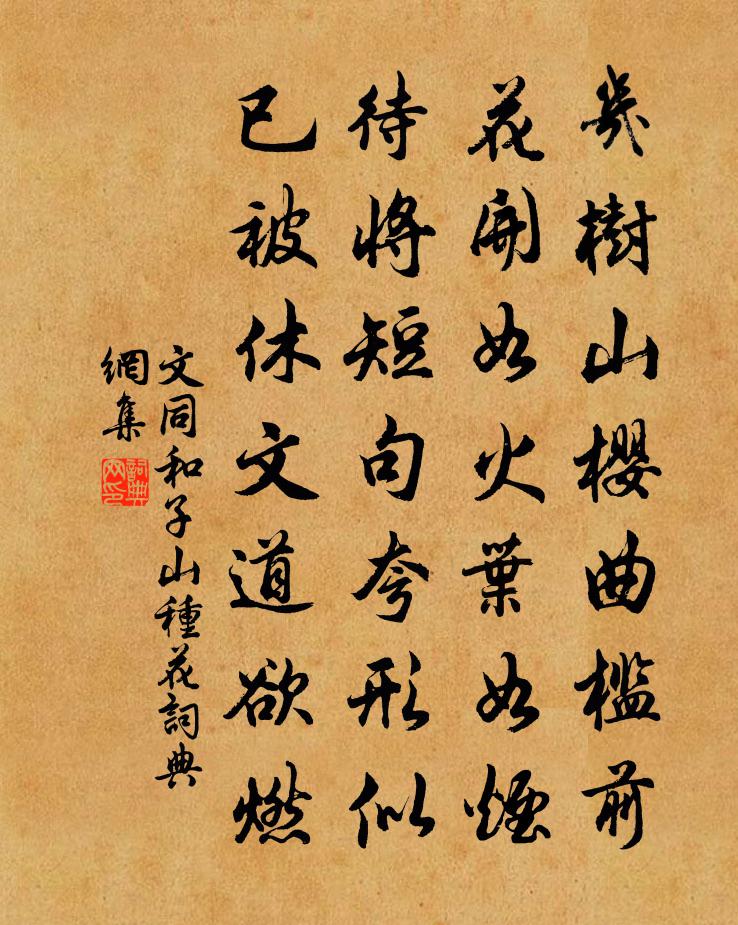 幾樹山櫻曲檻前
花開如火葉如煙
待將短句夸形似
已被休文道欲燃
文同和子山種花詞典
網集
詞典網印